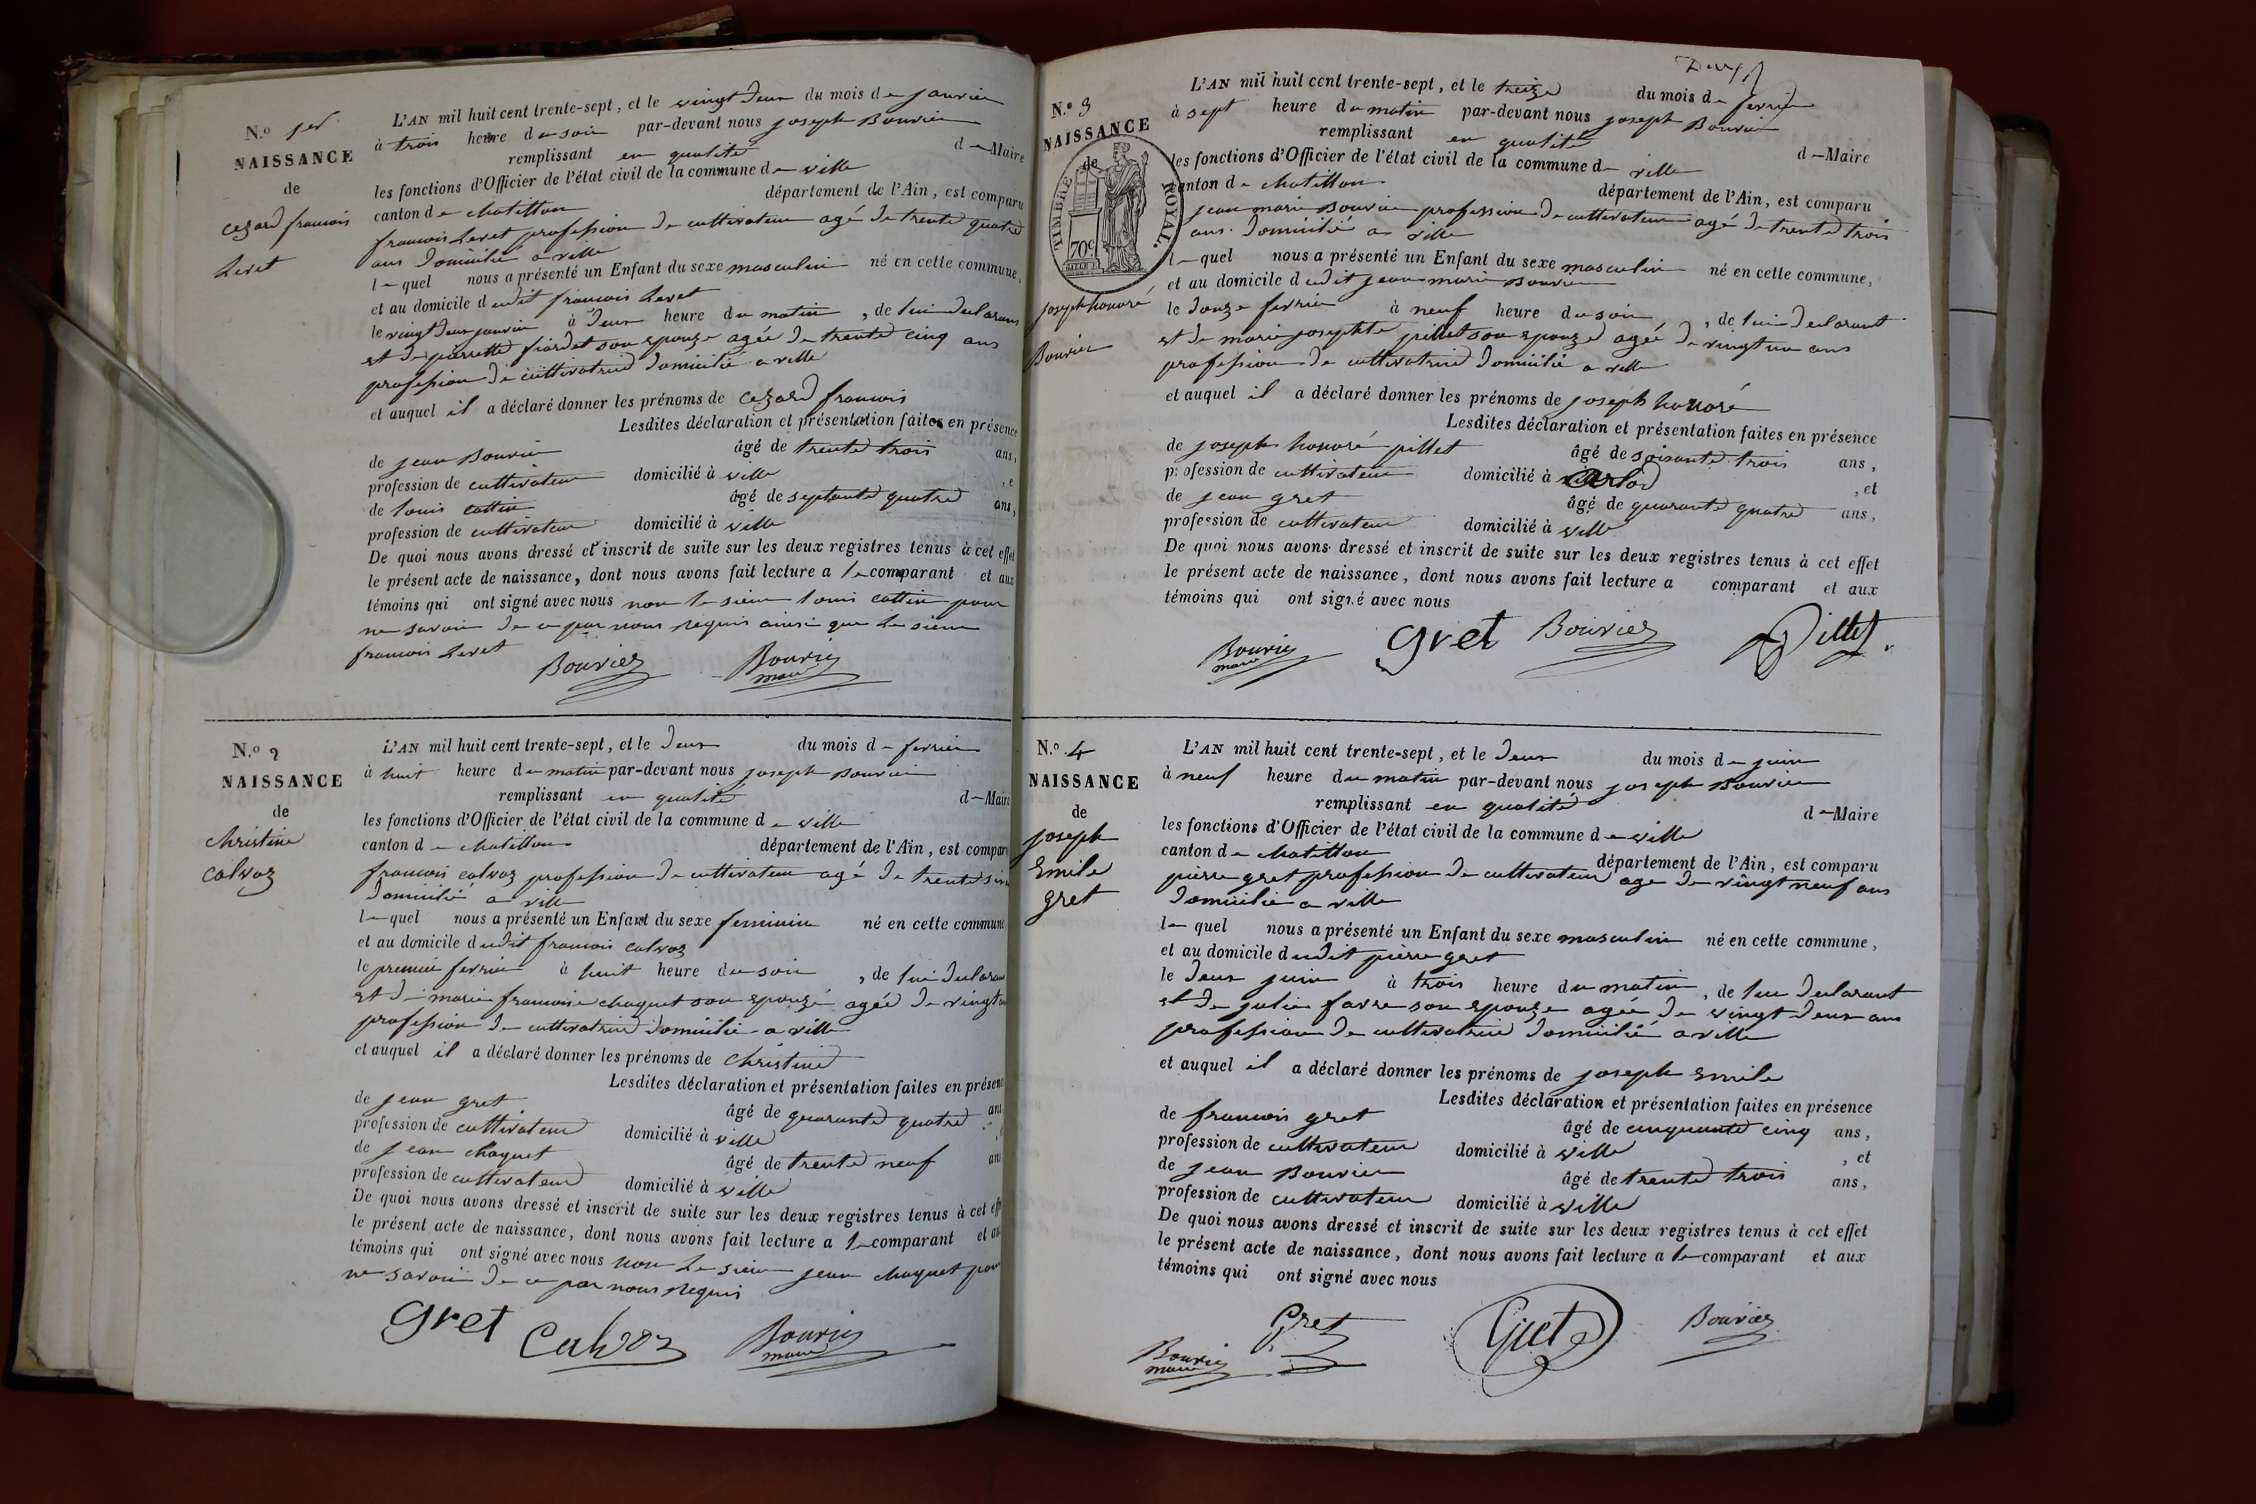 N.º 1er
NAISSANCE
de
cezard francois
Levet
L'AN mil huit cent trente-sept, et le vingt deux du mois de janvier
à trois heure du soir par-devant nous joseph Bouvier
remplissant en qualité de Maire
les fonctions d'Officier de l'état civil de la commune de ville
canton de chatillon département de l'Ain, est comparu
francois Levet profession de cultivateur agé de trente quatre
ans domicilié a ville
lequel nous a présenté un Enfant du sexe masculin né en cette commune,
et au domicile dudit francois Levet
le vingt deux janvier à deux heure du matin, de lui declarant
et de pierrette fiardet son epouze agée de trente cinq ans
profession de cultivatrice domicilié a ville
et auquel il a déclaré donner les prénoms de cezard francois
Lesdites déclaration et présentation faites en présence
de jean Bouvier âgé de trente trois ans,
profession de cultivateur domicilié à ville, e
de louis cottin âgé de septante quatre ans,
profession de cultivateur domicilié à ville
De quoi nous avons dressé et inscrit de suite sur les deux registres tenus à cet effet
le présent acte de naissance, dont nous avons fait lecture a le comparant et aux
témoins qui ont signé avec nous non le sieur louis cottin pour
ne savoir de ce par nous requis ainsi que le sieur
francois Levet
Bouvier Bouvier
maire
N.º 2
NAISSANCE
de
christine
calvoz
L'AN mil huit cent trente-sept, et le deux du mois de fevrier
à huit heure du matin par-devant nous joseph Bouvier
remplissant en qualité de Maire
les fonctions d'Officier de l'état civil de la commune de ville
canton de chatillon département de l'Ain, est compar
francois calvoz profession de cultivateur agé de trente six
domicilié a ville
lequel nous a présenté un Enfant du sexe feminin né en cette commune
et au domicile dudit francois calvoz
le premier fevrier à huit heure du soir, de lui declarant
et de marie francoise chaquet son epouze agée de vingt
profession de cultivatrice domicilié a ville
et auquel il a déclaré donner les prénoms de christine
Lesdites déclaration et présentation faites en présenc
de jean gret âgé de quarante quatre ans
profession de cultivateur domicilié à ville
de jean chaquet âgé de trente neuf ans
profession de cultivateur domicilié à ville
De quoi nous avons dressé et inscrit de suite sur les deux registres tenus à cet eff
le présent acte de naissance, dont nous avons fait lecture a le comparant et au
témoins qui ont signé avec nous non le sieur jean chaquet pour
ne savoir de ce par nous requis
gret Calvoz Bouvier
maire
N.º 3
NAISSANCE
de
TIMBRE ROYAL.
70c
joseph honoré
Bouvier
L'AN mil huit cent trente-sept, et le treize du mois de fevrier
à sept heure du matin par-devant nous joseph Bouvier
remplissant en qualité de Maire
les fonctions d'Officier de l'état civil de la commune de ville
canton de chatillon département de l'Ain, est comparu
jean marie Bouvier profession de cultivateur agé de trente trois
ans domicilié a ville
lequel nous a présenté un Enfant du sexe masculin né en cette commune,
et au domicile dudit jean marie Bouvier
le douze fevrier à neuf heure du soir, de lui declarant
et de marie josephte pillet son epouze agée de vingt un ans
profession de cultivatrice domicilié a ville
et auquel il a déclaré donner les prénoms de joseph honoré
Lesdites déclaration et présentation faites en présence
de joseph honoré pillet âgé de soisante trois ans,
profession de cultivateur domicilié à arlod, et
de jean gret âgé de quarante quatre ans,
profession de cultivateur domicilié à ville
De quoi nous avons dressé et inscrit de suite sur les deux registres tenus à cet effet
le présent acte de naissance, dont nous avons fait lecture a comparant et aux
témoins qui ont signé avec nous
Bouvier gret Bouvier Pillet
maire
N.º 4
NAISSANCE
de
joseph
Emile
gret
L'AN mil huit cent trente-sept, et le deux du mois de juin
à neuf heure du matin par-devant nous joseph Bouvier
remplissant en qualité de Maire
les fonctions d'Officier de l'état civil de la commune de ville
canton de chatillon département de l'Ain, est comparu
pierre gret profession de cultivateur age de vingt neuf ans
domicilié a ville
lequel nous a présenté un Enfant du sexe masculin né en cette commune,
et au domicile dudit pierre gret
le deux juin à trois heure du matin, de lui declarant
et de julie favre son epouze agée de vingt deux ans
profession de cultivatrice domicilié a ville
et auquel il a déclaré donner les prénoms de joseph Emile
Lesdites déclaration et présentation faites en présence
de francois gret âgé de cinquante cinq ans,
profession de cultivateur domicilié à ville, et
de jean Bouvier âgé de trente trois ans,
profession de cultivateur domicilié à ville
De quoi nous avons dressé et inscrit de suite sur les deux registres tenus à cet effet
le présent acte de naissance, dont nous avons fait lecture a le comparant et aux
témoins qui ont signé avec nous
Bouvier Gret Gret Bouvier
maire